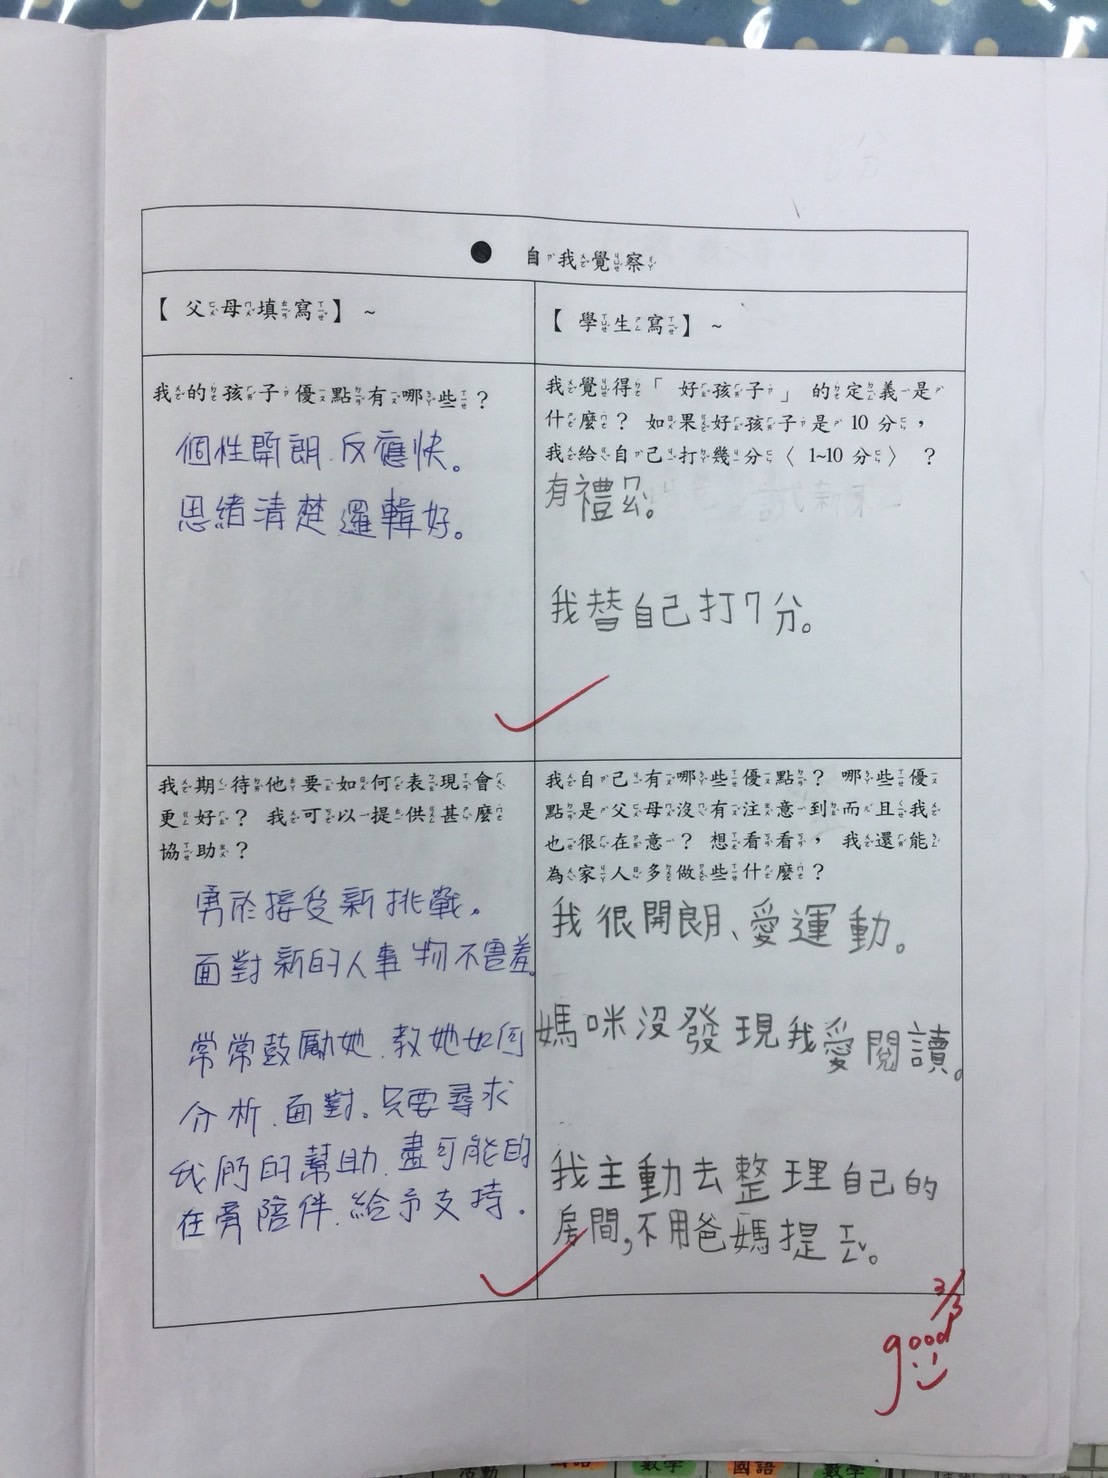 ● 自我覺察
【父母填寫】~
【學生寫】~
我的孩子優點有哪些？
個性開朗.反應快。
思緒清楚 邏輯好。
我覺得「好孩子」的定義是
什麼？如果好孩子是10分，
我給自己打幾分〈1~10分〉？
有禮ㄇㄠˋ。
我替自己打7分。
我期待他要如何表現會
更好？我可以提供甚麼
協助？
勇於接受新挑戰。
面對新的人事物不害羞。
常常鼓勵她.教她如何
分析.面對。只要尋求
我們的幫助.盡可能的
在旁陪伴.給予支持.
我自己有哪些優點？哪些優
點是父母沒有注意到而且我
也很在意？想看看，我還能
為家人多做些什麼？
我很開朗、愛運動。
媽咪沒發現我愛閱讀。
我主動去整理自己的
房間,不用爸媽提ㄒㄧㄥˇ。
3/3
good
國語
數學
國語
數學